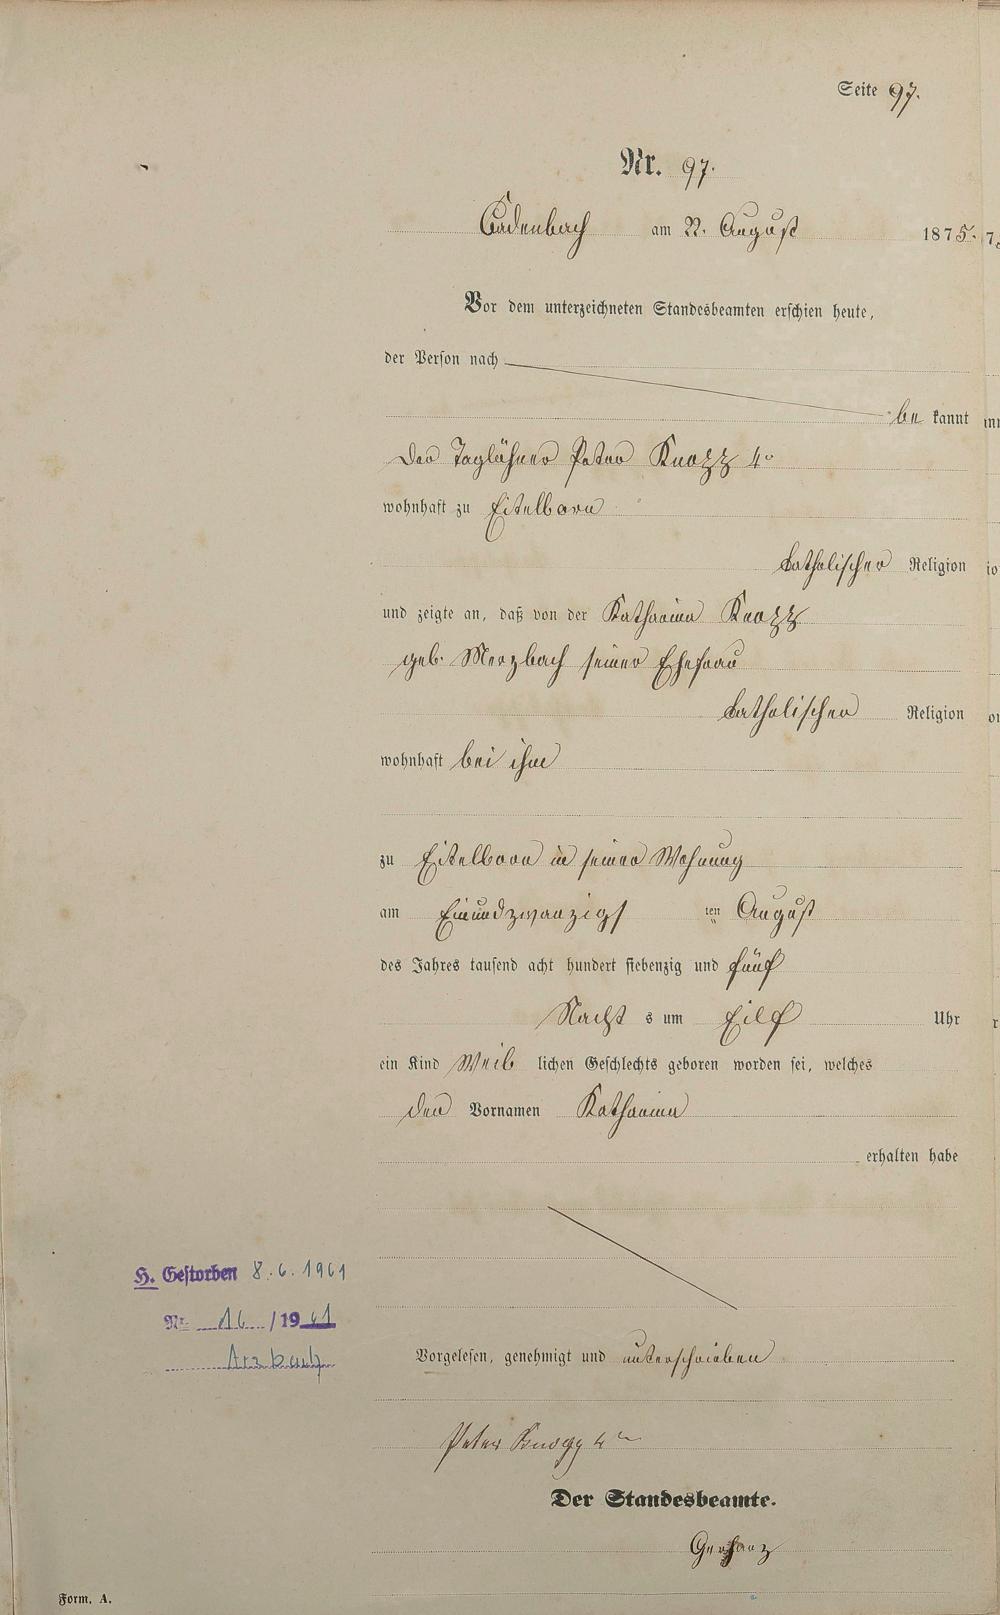 Seite 97.
Nr. 97.
Cadenbach am 22. August 1875.
Vor dem unterzeichneten Standesbeamten erschien heute,
der Person nach
be kannt
der Taglöhner Peter Knopp 4r
wohnhaft zu Eitelborn
katholischer Religion
und zeigte an, daß von der Katharina Knopp
geb. Merzbach seiner Ehefrau
katholischer Religion
wohnhaft bei ihm
zu Eitelborn in seiner Wohnung
am Einundzwanzigst ten August
des Jahres tausend acht hundert siebenzig und fünf
Nacht s um Eilf Uhr
ein Kind Weib lichen Geschlechts geboren worden sei, welches
den Vornamen Katharina
erhalten habe
H. Gestorben 8.6.1961
Nr. 16 /1961
Arzbach
Vorgelesen, genehmigt und unterschrieben
Peter Knopp 4r
Der Standesbeamte.
Gerharz
Form. A.